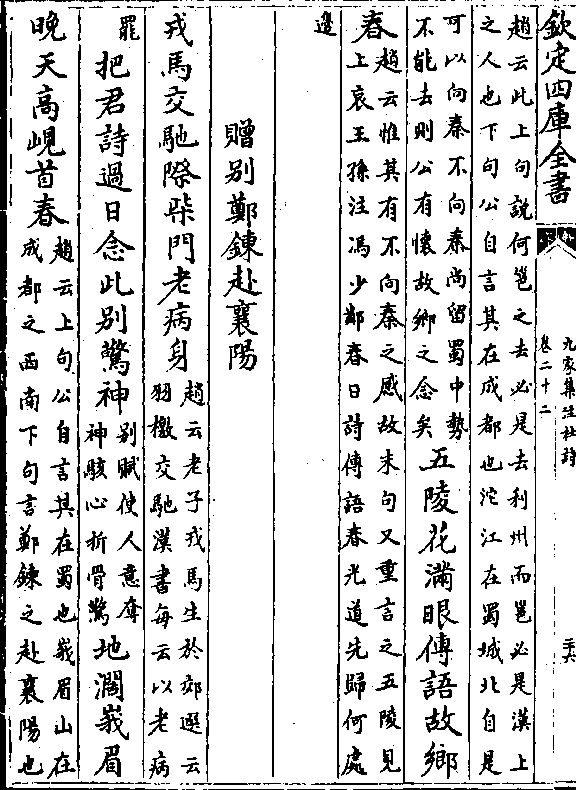 欽定四庫全書
九家集注杜詩
卷二十二
二十六
趙云此上句說何邕之去必是去利州而邕必是漢上
之人也下句公自言其在成都也沱江在蜀城北自是
可以向秦不向秦尚留蜀中勢
不能去則公有懷故鄉之念矣
五陵花滿眼傳語故鄉
春
趙云惟其有不向秦之感故末句又重言之五陵見
上哀王孫注馮少鄰春日詩傳語春光道先歸何處
邊
贈别鄭鍊赴襄陽
戎馬交馳際柴門老病身
趙云老子戎馬生於郊選云
羽檄交馳漢書每云以老病
罷
把君詩過日念此别驚神
别賦使人意奪
神駭心折骨驚
地濶峩眉
晚天高峴首春
趙云上句公自言其在蜀也峩眉山在
成都之西南下句言鄭鍊之赴襄陽也